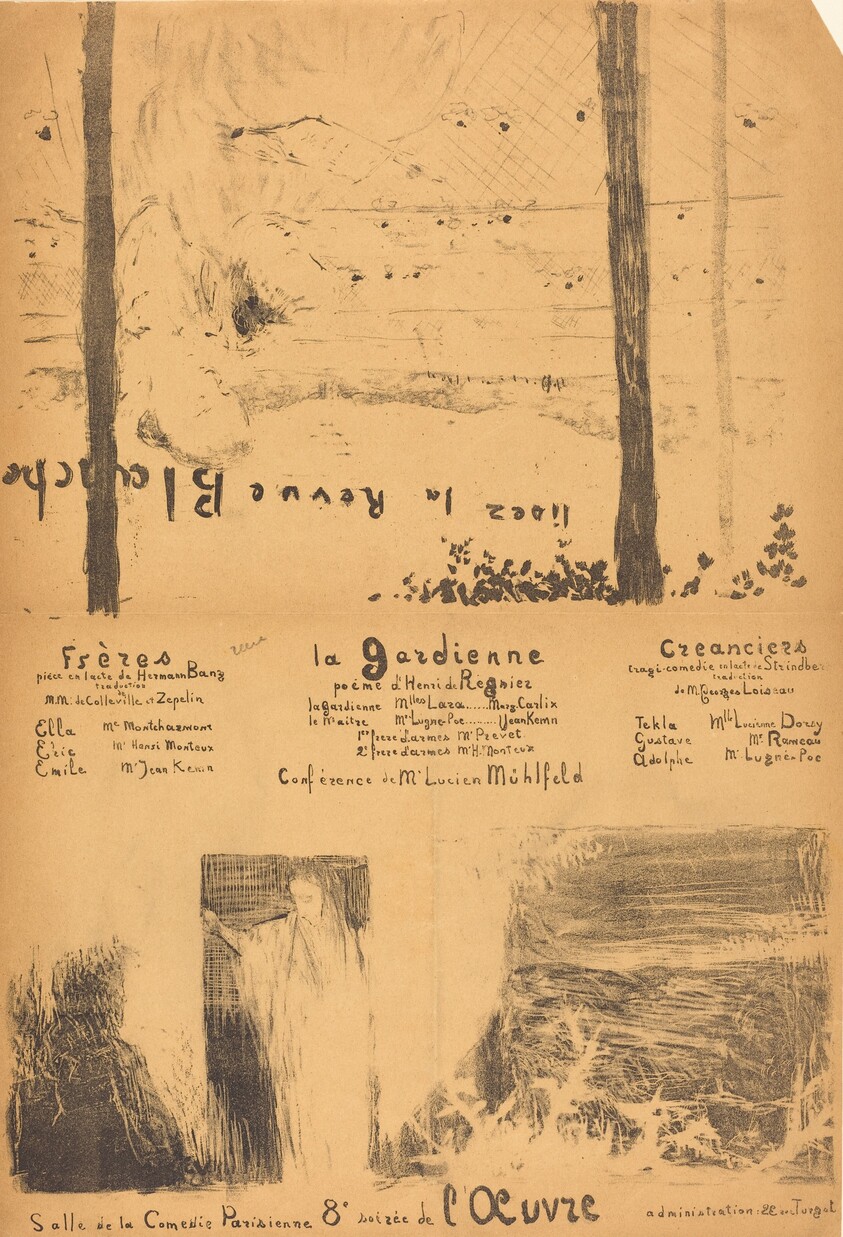 lisez la Revue Blanche
Frères
pièce en 1 acte de Hermann Bang
traduction
M.M. de Colleville et Zepelin
Ella Me Montcharmont
Eric Mr Henri Monteux
Emile Mr Jean Kemm
la gardienne
poème d'Henri de Regnier
la gardienne Mlles Lara......Marg. Carlix
le Maitre Mr Lugne-Poe........Jean Kemn
1er frere d'armes Mr Prevet
2e frere d'armes Mr H. Monteux
Conférence de Mr Lucien Mühlfeld
Creanciers
tragi-comedie en 1 acte de Strindber
traduction
de M. Georges Loiseau
Tekla Mlle Lucienne Dorsy
Gustave Mr Rameau
Adolphe Mr Lugné-Poe
Salle de la Comedie Parisienne 8e soirée de l'Œuvre
administration: 22 rue Turgot